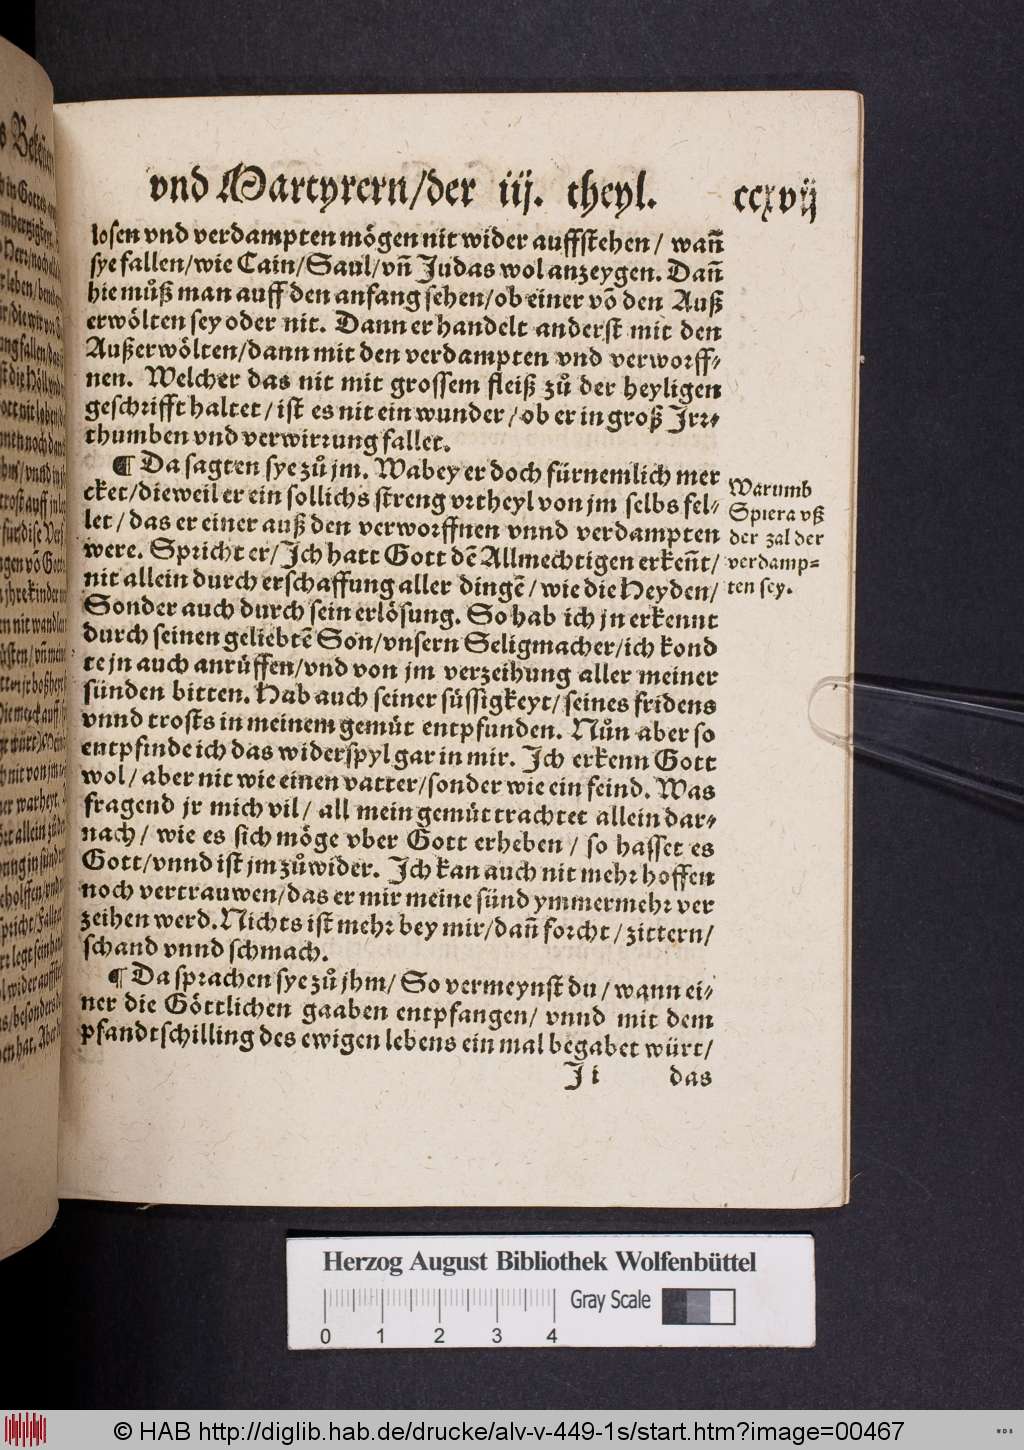 vnd Martyrern/der iij. theyl. ccxvij
losen vnd verdampten mögen nit wider auffstehen/ wañ
sye fallen/wie Cain/Saul/vñ Judas wol anzeygen. Dañ
hie můß man auff den anfang sehen/ob einer võ den Auß
erwölten sey oder nit. Dann er handelt anderst mit den
Außerwölten/dann mit den verdampten vnd verworff⸗
nen. Welcher das nit mit grossem fleiß zů der heyligen
geschrifft haltet/ ist es nit ein wunder/ob er in groß Irr⸗
thumben vnd verwirrung fallet.
¶ Da sagten sye zů jm. Wabey er doch fürnemlich mer
cket/dieweil er ein sollichs streng vrtheyl von jm selbs fel⸗
let/ das er einer auß den verworffnen vnnd verdampten
were. Spricht er/Ich hatt Gott dẽ Allmechtigen erkeñt/
nit allein durch erschaffung aller dingẽ/ wie die Heyden/
Sonder auch durch sein erlösung. So hab ich jn erkennt
durch seinen geliebtẽ Son/vnsern Seligmacher/ich kond
te jn auch anrüffen/vnd von jm verzeihung aller meiner
sünden bitten. Hab auch seiner süssigkeyt/seines fridens
vnnd trosts in meinem gemüt entpfunden. Nůn aber so
entpfinde ich das widerspyl gar in mir. Ich erkenn Gott
wol/ aber nit wie einen vatter/sonder wie ein feind. Was
fragend jr mich vil/ all mein gemüt trachtet allein dar⸗
nach/ wie es sich möge vber Gott erheben/ so hasset es
Gott/vnnd ist jm zůwider. Ich kan auch nit mehr hoffen
noch vertrauwen/das er mir meine sünd ymmermehr ver
zeihen werd. Nichts ist mehr bey mir/dañ forcht/zittern/
schand vnnd schmach.
¶ Da sprachen sye zů jhm/ So vermeynst du/ wann ei⸗
ner die Göttlichen gaaben entpfangen/ vnnd mit dem
pfandtschilling des ewigen lebens ein mal begabet würt/
Ji das
Warumb
Spiera vß
der zal der
verdamp⸗
ten sey.
Herzog August Bibliothek Wolfenbüttel
Gray Scale
0 1 2 3 4
© HAB http://diglib.hab.de/drucke/alv-v-449-1s/start.htm?image=00467